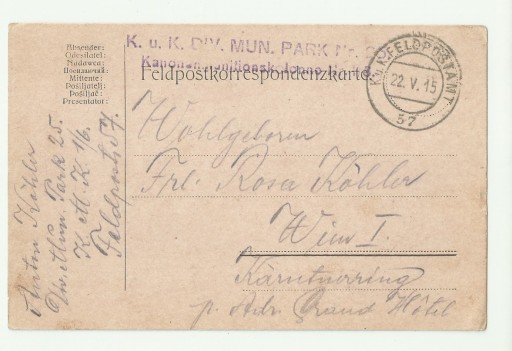 Absender:
Odesílatel:
Nadawca:
Mittente:
Pošiljatelj:
Pošiljač:
Presentator:
K. u. K. DIV. MUN. PARK Nr. 2
Feldpostkorrespondenzkarte.
K.u.K. FELDPOSTAMT
22. V. 15
57
Wohlgeboren
Frl. Rosa Köhler
Wien I.
Kärntnerring
p. Adr. Grand Hôtel
Anton Köhler
Div. Mun. Park 25.
K. M. K. 1/6.
Feldpost 57.